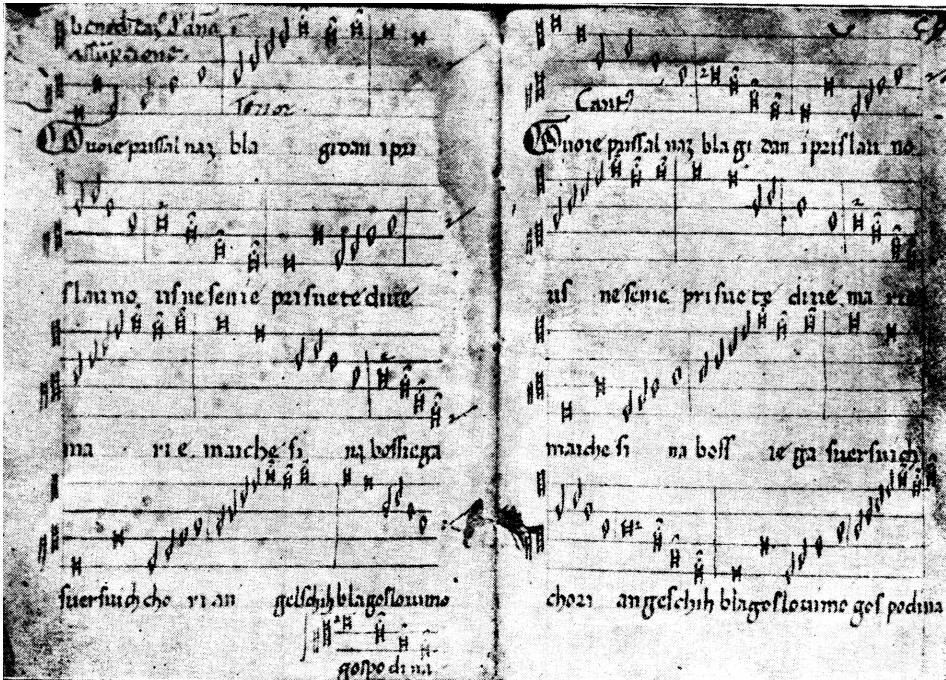 Tenor
Tuoie prissal naz bla gidan i pri
slauno usnesenie prisuete diue
ma rie maiche si na bossiega
suersuich cho ri an gelschih blagoslouimo
gospodina
Cant9
Tuoie prissal naz bla gi dan i prislau no
us nesenie prisuete diue ma rie
maiche si na boss ie ga suersuich
chori angelschih blagoslouimo gospodina